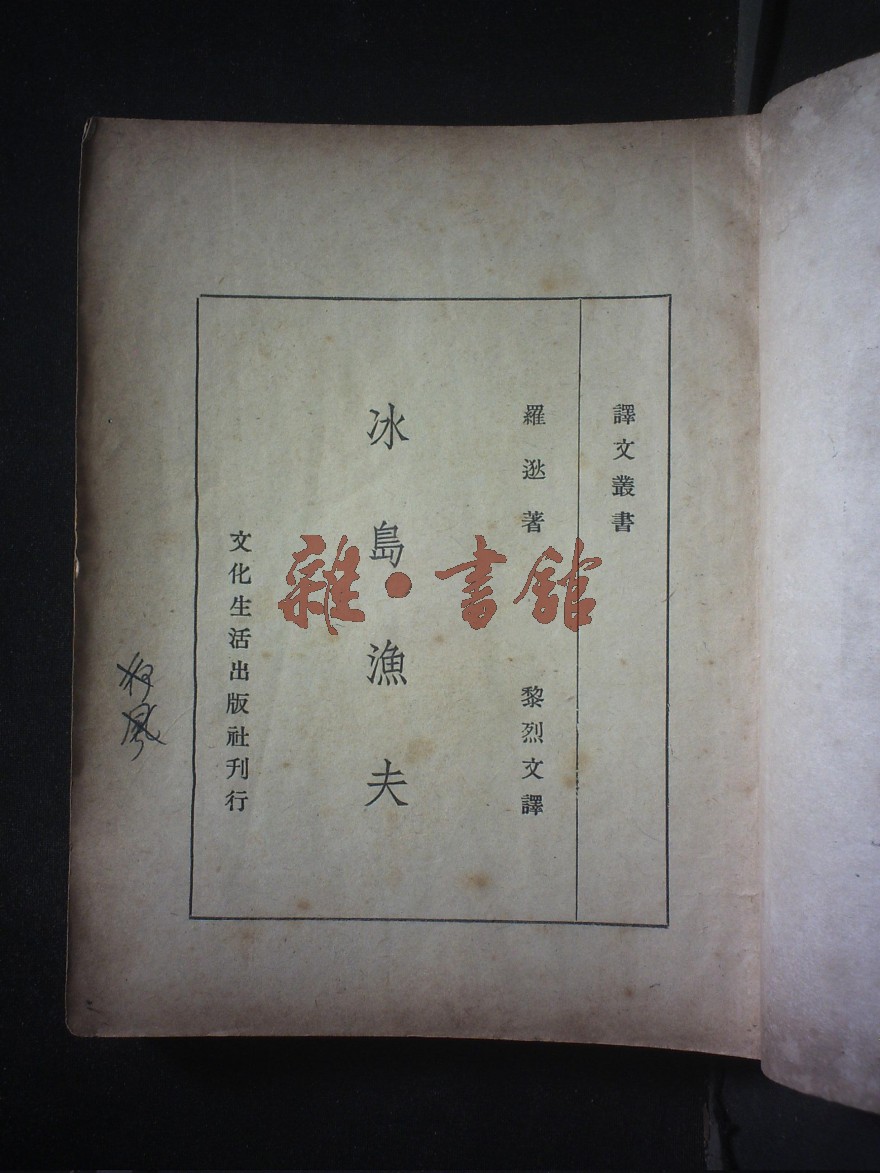 譯文叢書
羅逖著 黎烈文譯
冰島漁夫
文化生活出版社刊行
雜·書館